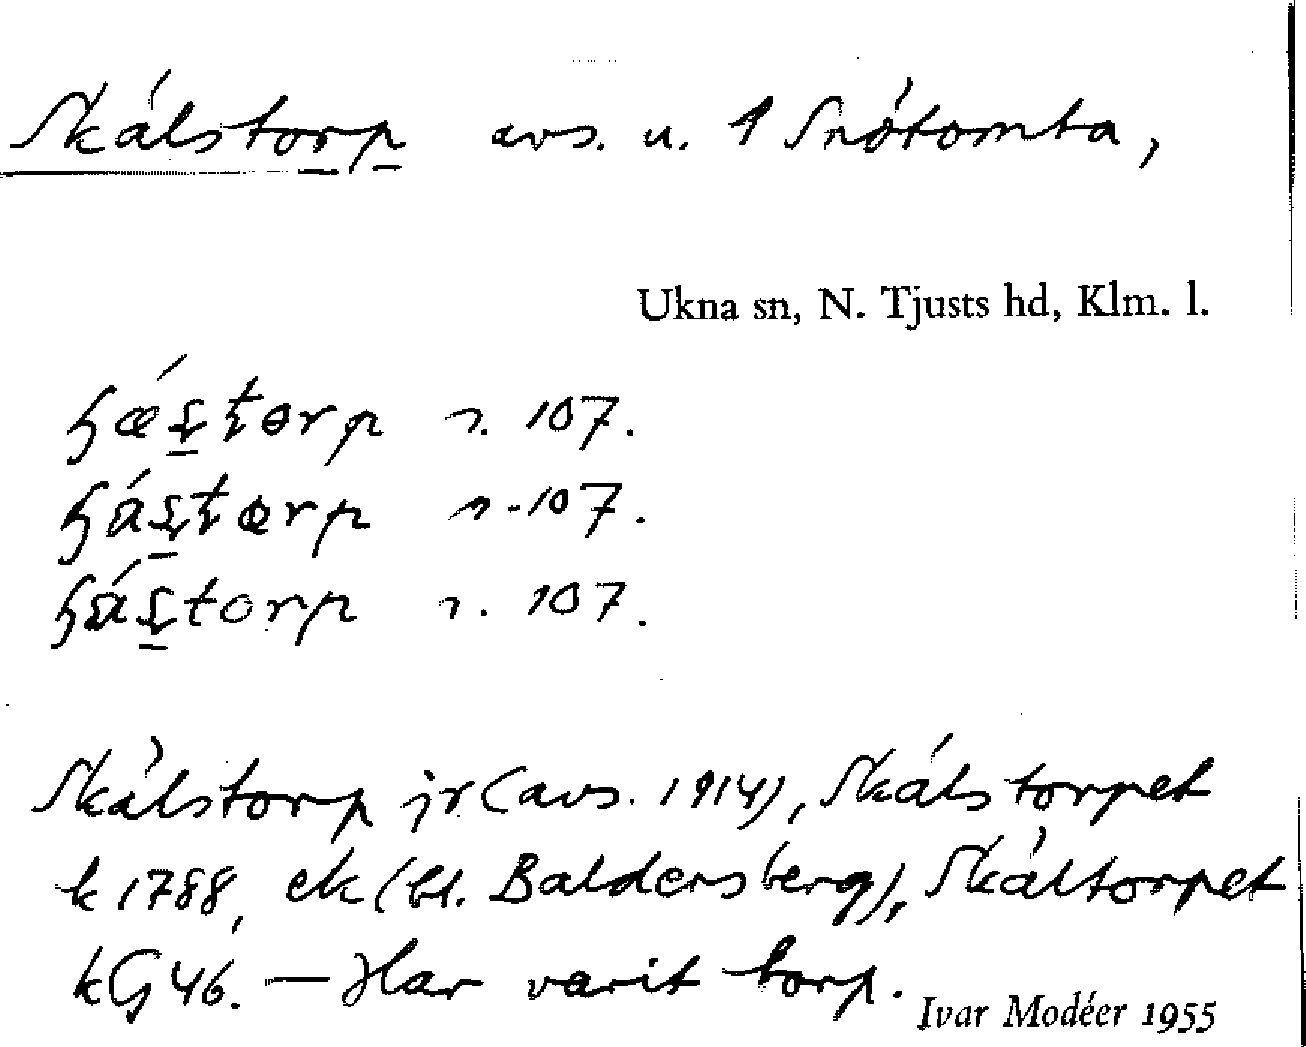 Skálstorp avs. u. 1 Snótomta,
Ukna sn, N. Tjusts hd, Klm. l.
r. 107.
r. 107.
r. 107.
Skálstorp jr (avs. 1914), Skálstorpet
k 1788, ek (bl. Baldersberg), Skáltorpet
kG 46. — Har varit torp.
Ivar Modéer 1955